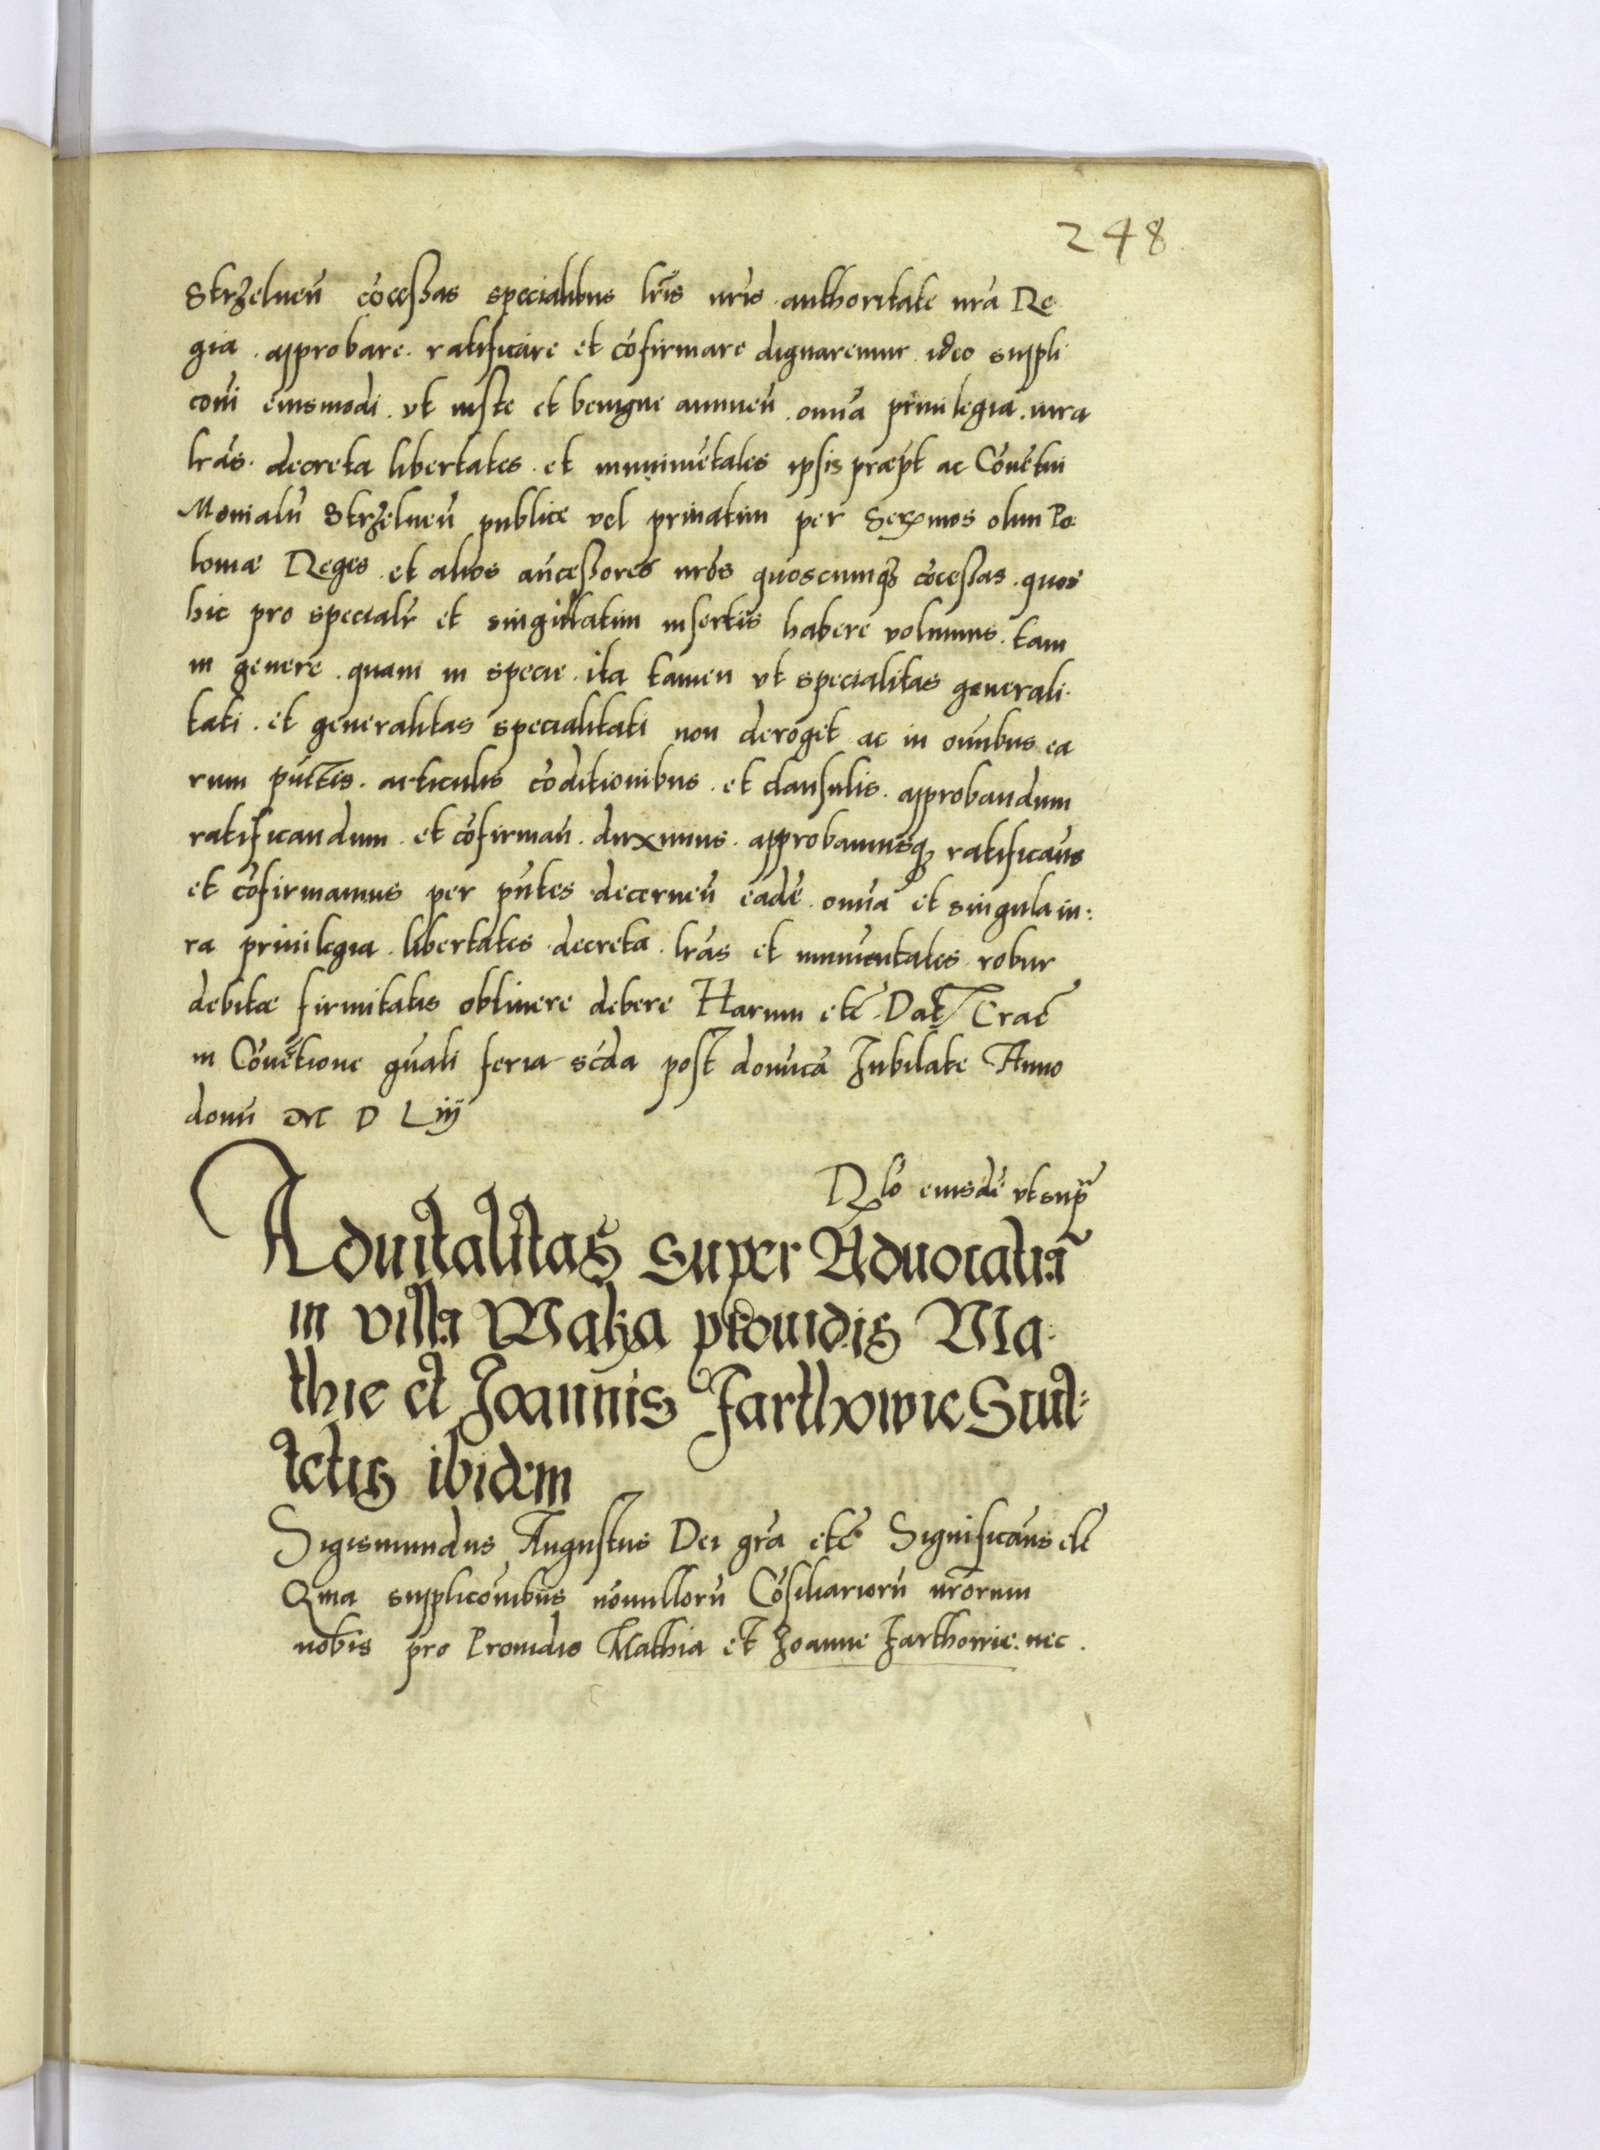 248
Strzelneñ cõcessas specialibus lr̃is nr̃is authoritate nr̃a Re
gia. approbare. ratificare et cõfirmare dignaremur. ideo suppli
coñi eiusmodi. vt iuste et benigne annueñ. omia priuilegia. iura
lr̃as. decreta libertates. et munimẽtales ipsis præpt ac Cõuẽtui
Monialiũ Strzelneñ publice vel priuatim per Serxmos olim Po
loniæ Reges. et alios añcessores nr̃os quoscumqȝ cõcessas. quos
hic pro specialr̃ et singillatim insertis habere volumus. tam
in genere. quam in specie. ita tamen vt specialitas generali
tati. et generalitas specialitati non deroget ac in omĩbus ea
rum pũctis. articulis cõditionibus. et clausulis. approbandum
ratificandum. et cõfirmañ. duximus. approbamusqȝ ratificam9
et cõfirmamus per pñtes decerneñ eadẽ. omĩa et singula iu:
ra priuilegia. libertates. decreta. lr̃as et munimentales. robur
debitæ firmitatis obtinere debere Harum etc̃. Dat̃ Crac̃
in Cõuẽtione gñali feria scđa post domĩcã Iubilate Anno
domi M D Liij
Rlõ eiusdẽ vt supr̃
Aduitalitas super Aduocatia
in villa Maka prouidis Ma-
thie et Joannis Jarthowie Scul-
tetis ibidem
Sigismundus Augustus Dei gr̃a etc̃ Significam9 etc̃
Qma supplicoñibus nõnullorũ Cõsiliariorũ nr̃orum
nobis pro Prouidis Mathia et Joanne Jarthowie. nec.